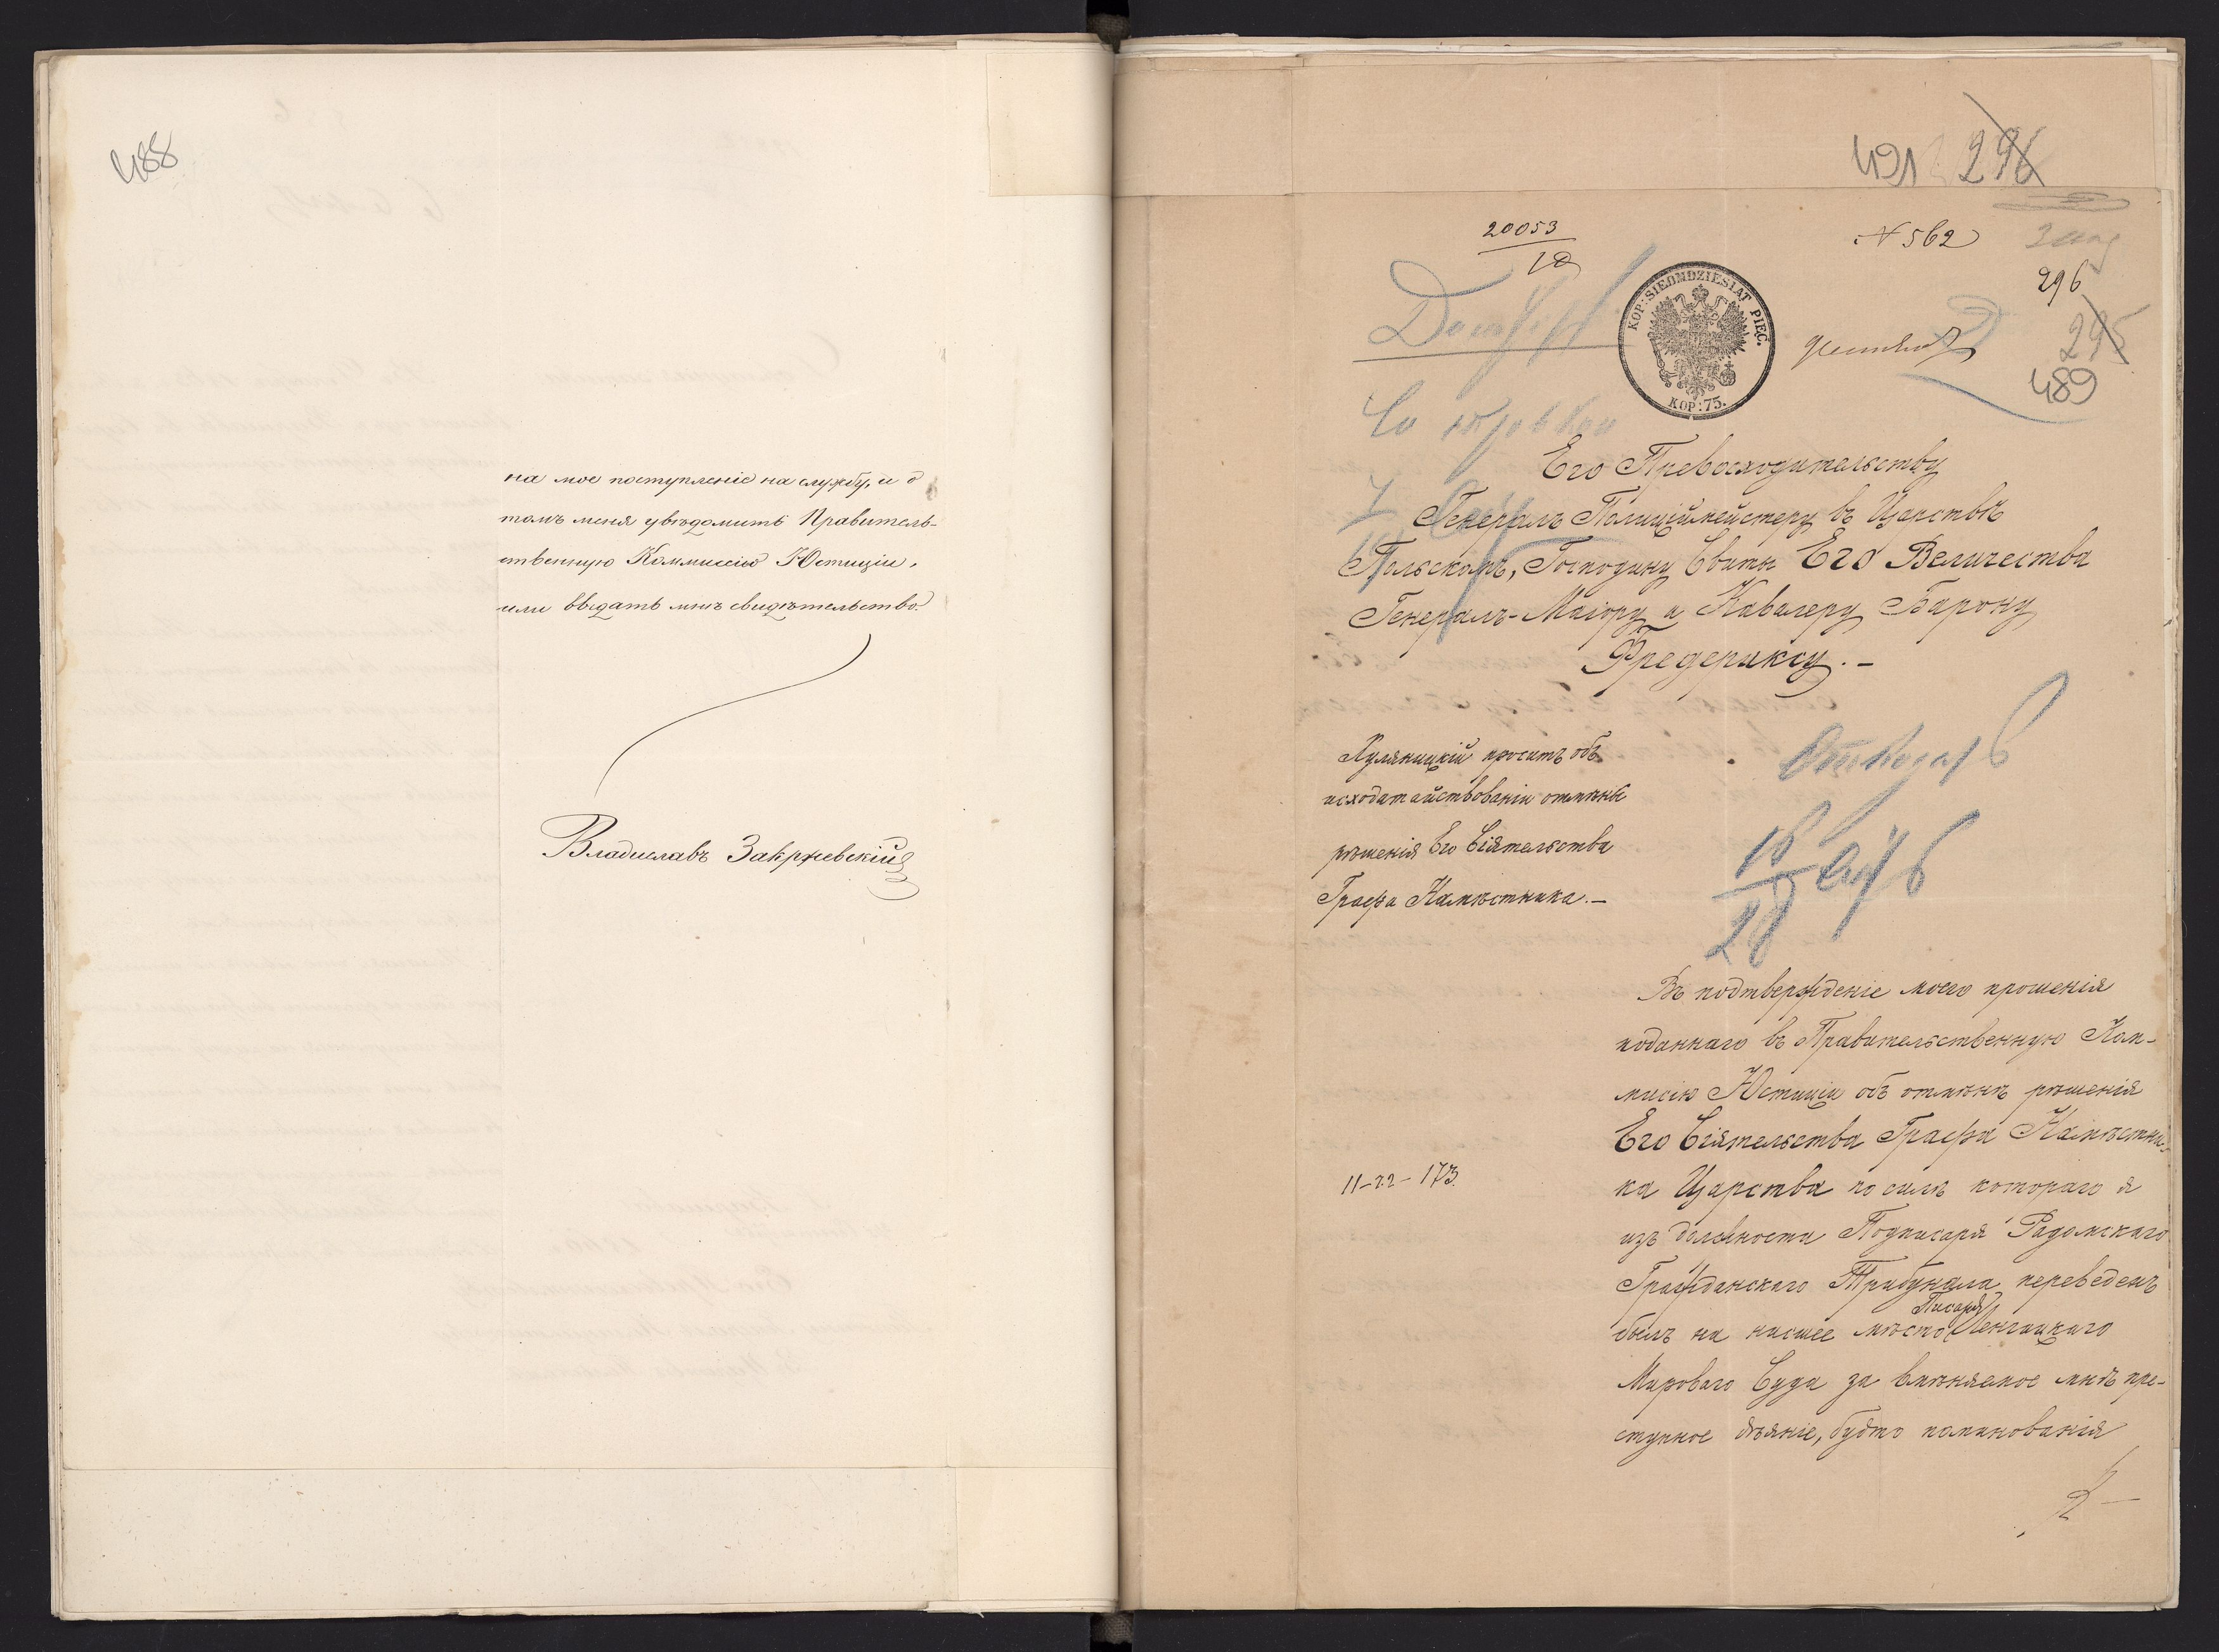 488
на мое поступленіе на службу, и о
томъ меня увѣдомить Правитель-
ственную Коммисію Юстиціи,
или выдать мнѣ свидѣтельство.
Владиславъ Закржевскій
491 296
20053
18
N 562
296
295
489
KOP: SIEDMDZIESIĄT PIĘC.
KOP: 75.
Его Превосходительству
Генералъ Полиціймейстеру въ Царствѣ
Польскомъ, Господину Свиты Его Величества
Генералъ-Маіору и Кавалеру Барону
Фредериксу.-
Куляницкій проситъ объ
исходатайствованіи отмѣны
рѣшенія Его Сіятельства
Графа Намѣстника.-
18
28
Въ подтвержденіе моего прошенія
поданнаго въ Правительственную Ком-
мисію Юстиціи объ отмѣнѣ рѣшенія
Его Сіятельства Графа Намѣстни-
ка Царства по силѣ котораго я
11-22-173.
изъ должности Подписаря Радомскаго
Гражданскаго Трибунала переведенъ
Писаря
былъ на нисшее мѣсто Ленчицкаго
Мироваго Суда за вмѣняемое мнѣ пре-
ступное дѣяніе, будто